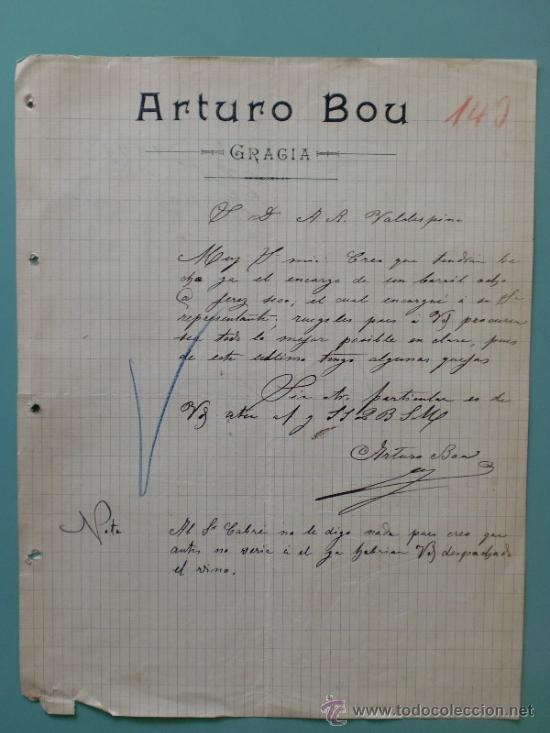 Arturo Bou
143
GRACIA
S. D. A. R. Valdespino
Muy S. mio: Creo que tendrán he
cho ya el encargo de un barril ocho
@ jerez seco, el cual encargué á su Sr
representante; ruegoles pues a Vd procuren
sea todo lo mejor posible en clase, pues
de este ultimo tengo algunas quejas
Sin otr. particular es de
Vd atto y S S Q B S M
Arturo Bou
Nota
Al Sr Cabré no le digo nada pues creo que
antes no veria á él ya habrian Vd despachado
el vino.
www.todocoleccion.net